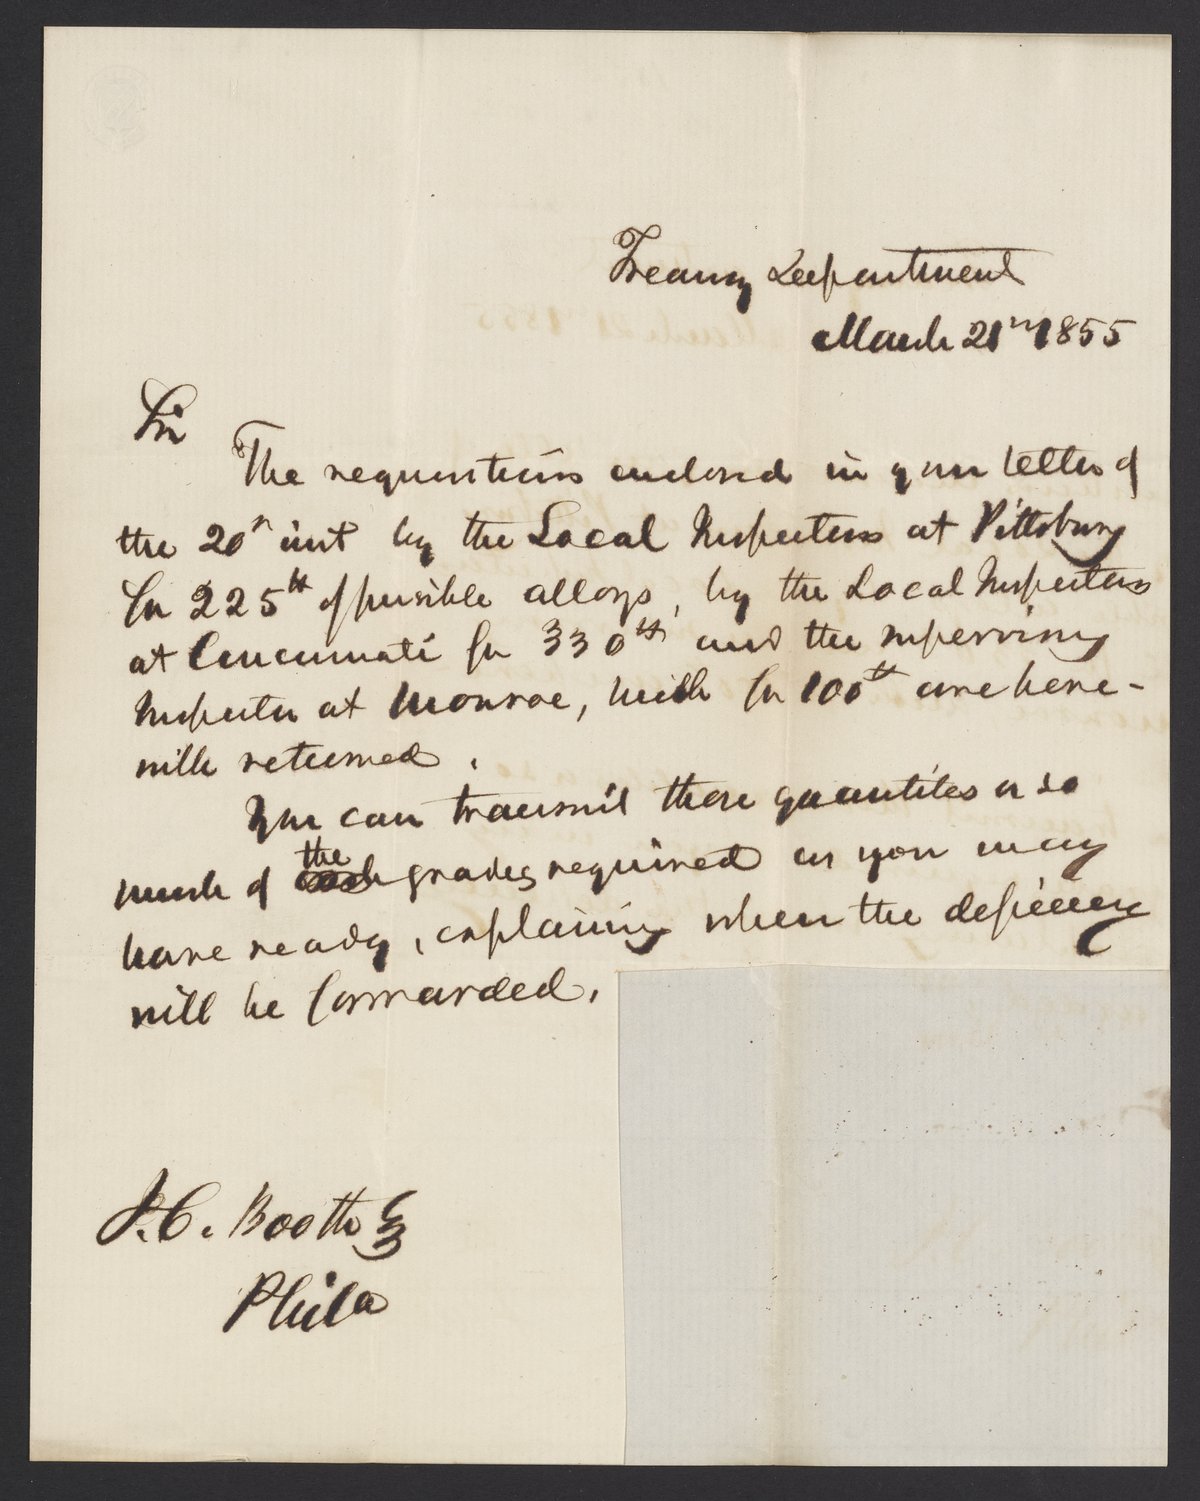 Treasury Department
March 21st 1855
Sir
The requisitions enclosed in your letter of
the 20th inst by the Local Inspectors at Pittsburg
for 225 lb of fusible alloys, by the Local Inspectors
at Cincinnati for 330 lb and the supervising
Inspector at Monroe, Mich for 100 lb are here-
with returned.
You can transmit these quantities or so
much of the grades required as you may
have ready, explaining when the deficiency
will be forwarded.
J. C. Booth Esq
Phila